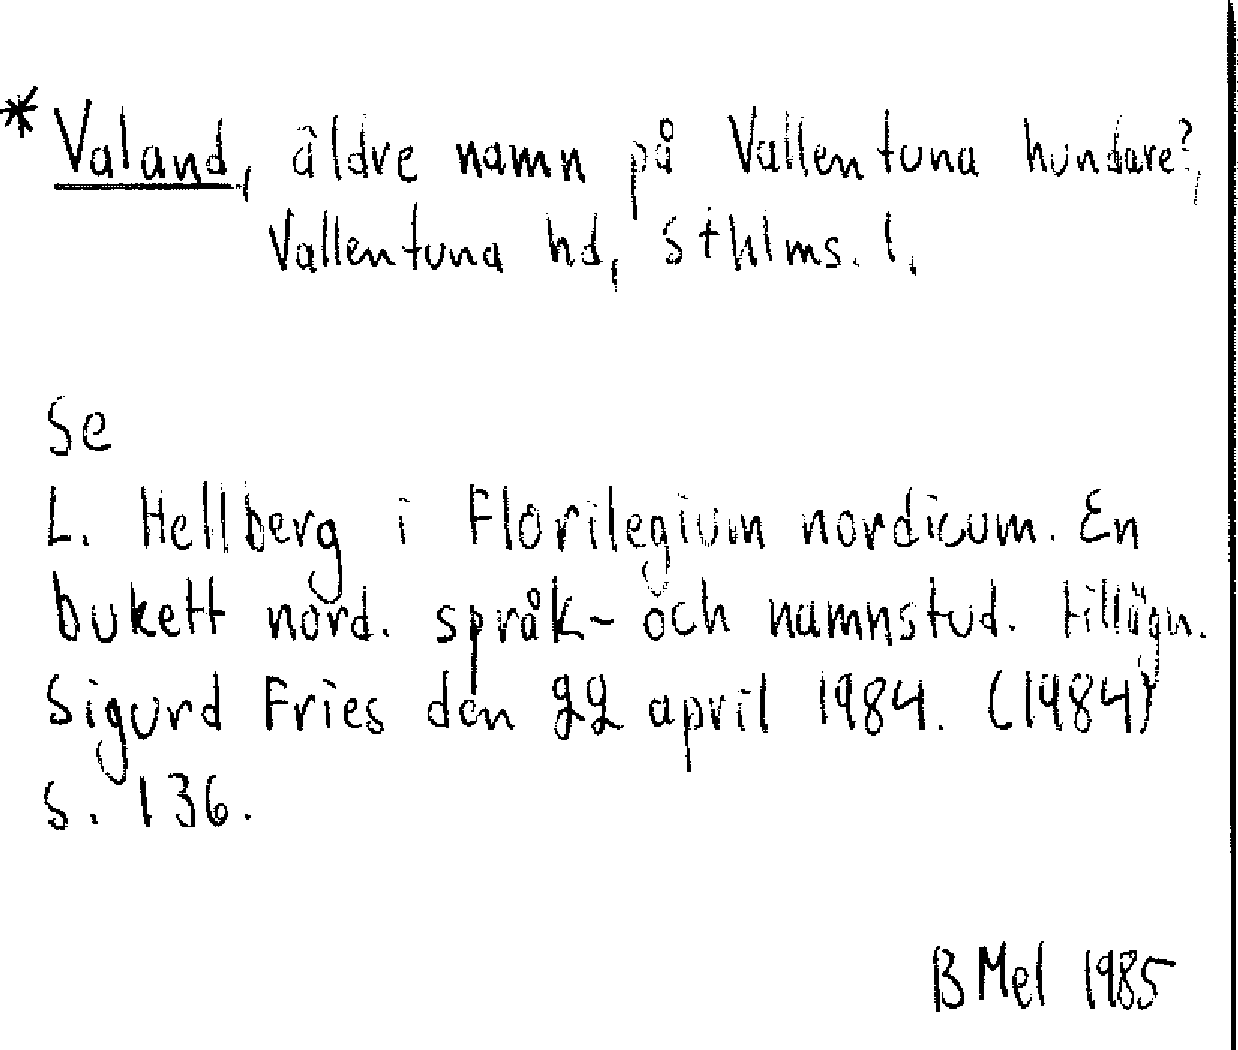 *Valand, äldre namn på Vallentuna hundare?,
Vallentuna hd, Sthlms. l.
Se
L. Hellberg i Florilegium nordicum. En
bukett nord. språk- och namnstud. tillägn.
Sigurd Fries den 22 april 1984. (1984)
s. 136.
B Mel 1985